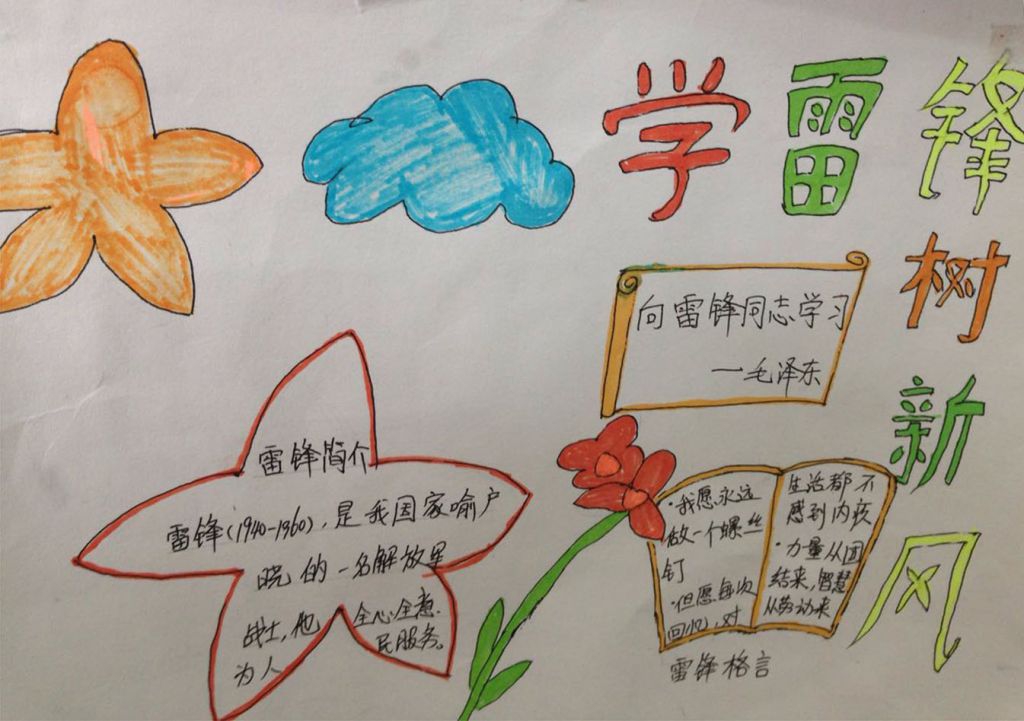 学雷锋
树新风
向雷锋同志学习
—毛泽东
雷锋简介
雷锋(1940-1960),是我国家喻户
晓的一名解放军
战士,他
为人
全心全意
民服务。
·我愿永远
做一个螺丝
钉
·但愿每次
回忆,对
生活都不
感到内疚
·力量从团
结来,智慧
从劳动来
雷锋格言